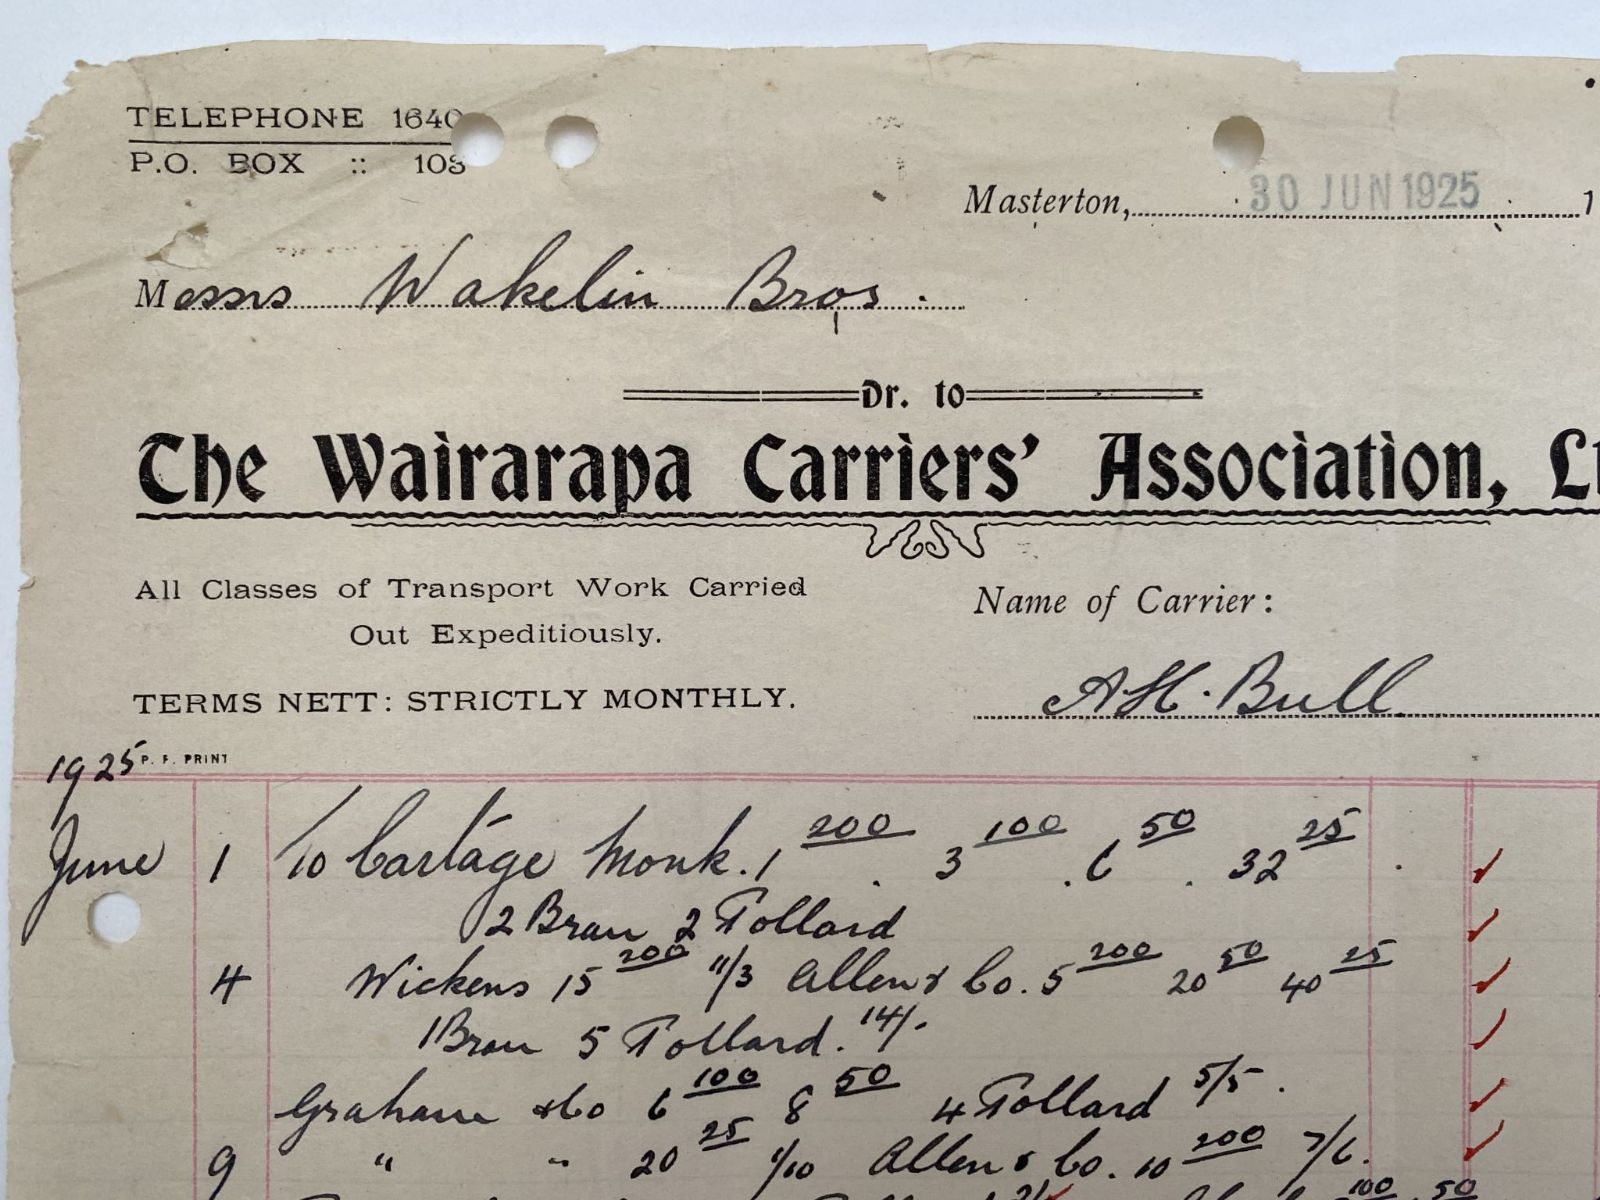 TELEPHONE 1640
P.O. BOX :: 103
Masterton, 30 JUN 1925 1
Messrs Wakelin Bros.
Dr. to
The Wairarapa Carriers' Association,
All Classes of Transport Work Carried
Out Expeditiously.
Name of Carrier:
TERMS NETT: STRICTLY MONTHLY.
A H. Bull
1925 P. F. PRINT
June 1 To Cartage Monk. 1 200 . 3 100 . 6 50 . 32 25
2 Bran 2 Pollard
4 Wickens 15 200 11/3 Allen & Co. 5 200 20 50 40 25
1 Bran 5 Pollard. 14/.
Graham & Co 6 100 8 50 4 Pollard 5/5.
9 " " 20 25 1/10 Allen & Co. 10 200 7/6.
100 50